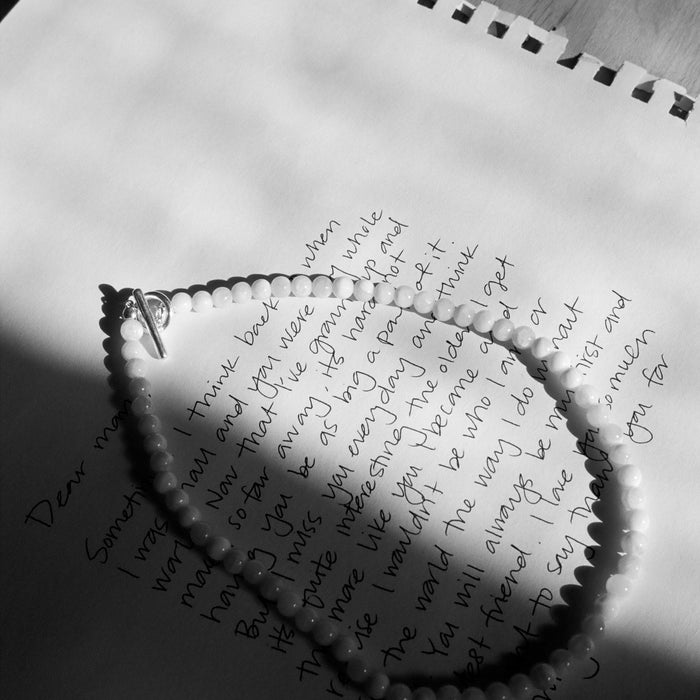 Dear mom
Sometimes I think back when
I was small and you were my whole
world Now that I've grown up and
so far away, its hard not
having you be as big a part of it.
But I miss you everyday and think
Its quite interesting the older I get
the more like you I became and
I wouldn't be who I am or
the world the way I do
You will always be my first and
best friend. I love you so much
to say thank you for